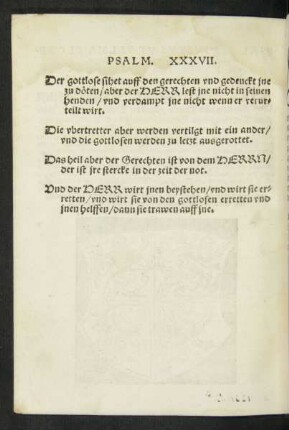 PSALM. XXXVII.
Der gottlose sihet auff den gerechten vnd gedenckt jne
zu döten/aber der HERR lest jne nicht in seinen
henden/vnd verdampt jne nicht wenn er verur-
teilt wirt.
Die vbertretter aber werden vertilgt mit ein ander/
vnd die gottlosen werden zu letzt ausgerottet.
Das heil aber der Gerechten ist von dem HERRN/
der ist jre stercke in der zeit der not.
Vnd der HERR wirt jnen beystehen/vnd wirt sie er-
retten/vnd wirt sie von den gottlosen erretten vnd
jnen helffen/dann sie trawen auff jne.